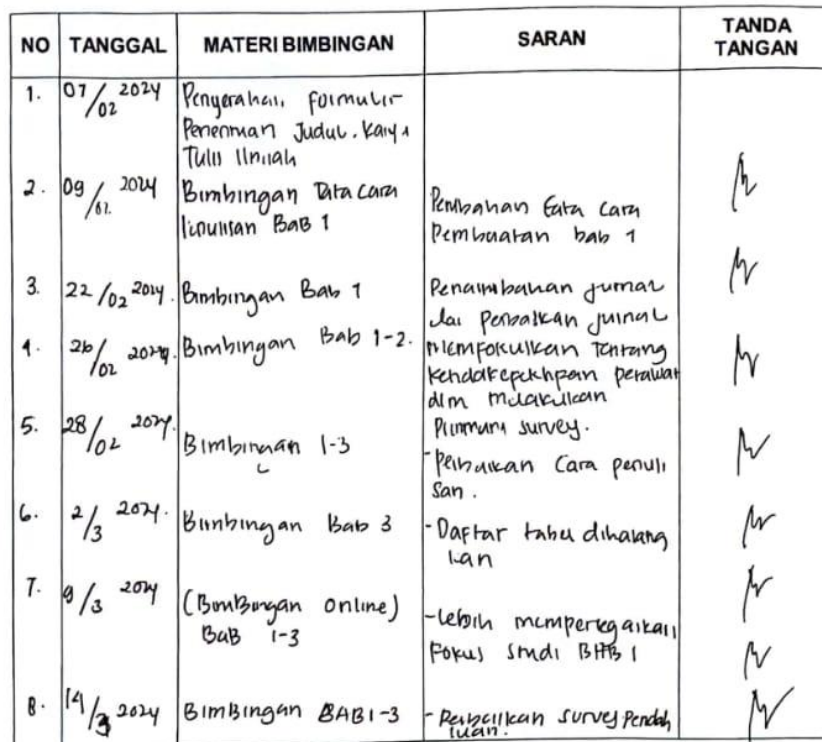 NO TANGGAL MATERI BIMBINGAN SARAN TANDA TANGAN
1. 07/02 2024 Penyerahan formulir
Judul. Karya
Tulis Ilmiah
2. 09/02 2024 Bimbingan Tata Cara
BAB 1
Tata Cara
Pembuatan bab 1
3. 22/02 2024. Bimbingan Bab 1
Penambahan jurnal
perbaikan jurnal
4. 26/02 2024. Bimbingan Bab 1-2.
Memfokuskan Tentang
perawat
dlm melakukan
survey.
5. 28/02 2024. Bimbingan 1-3
- Perbaikan Cara penuli
san.
6. 2/3 2024. Bimbingan Bab 3
- Daftar tabel dihilang
kan
7. 9/3 2024 (Bimbingan online)
BAB 1-3
- Lebih
Fokus Studi BAB 1
8. 14/3 2024 BIMBINGAN BAB 1-3
- Perbaikan survey Pendah
luan.